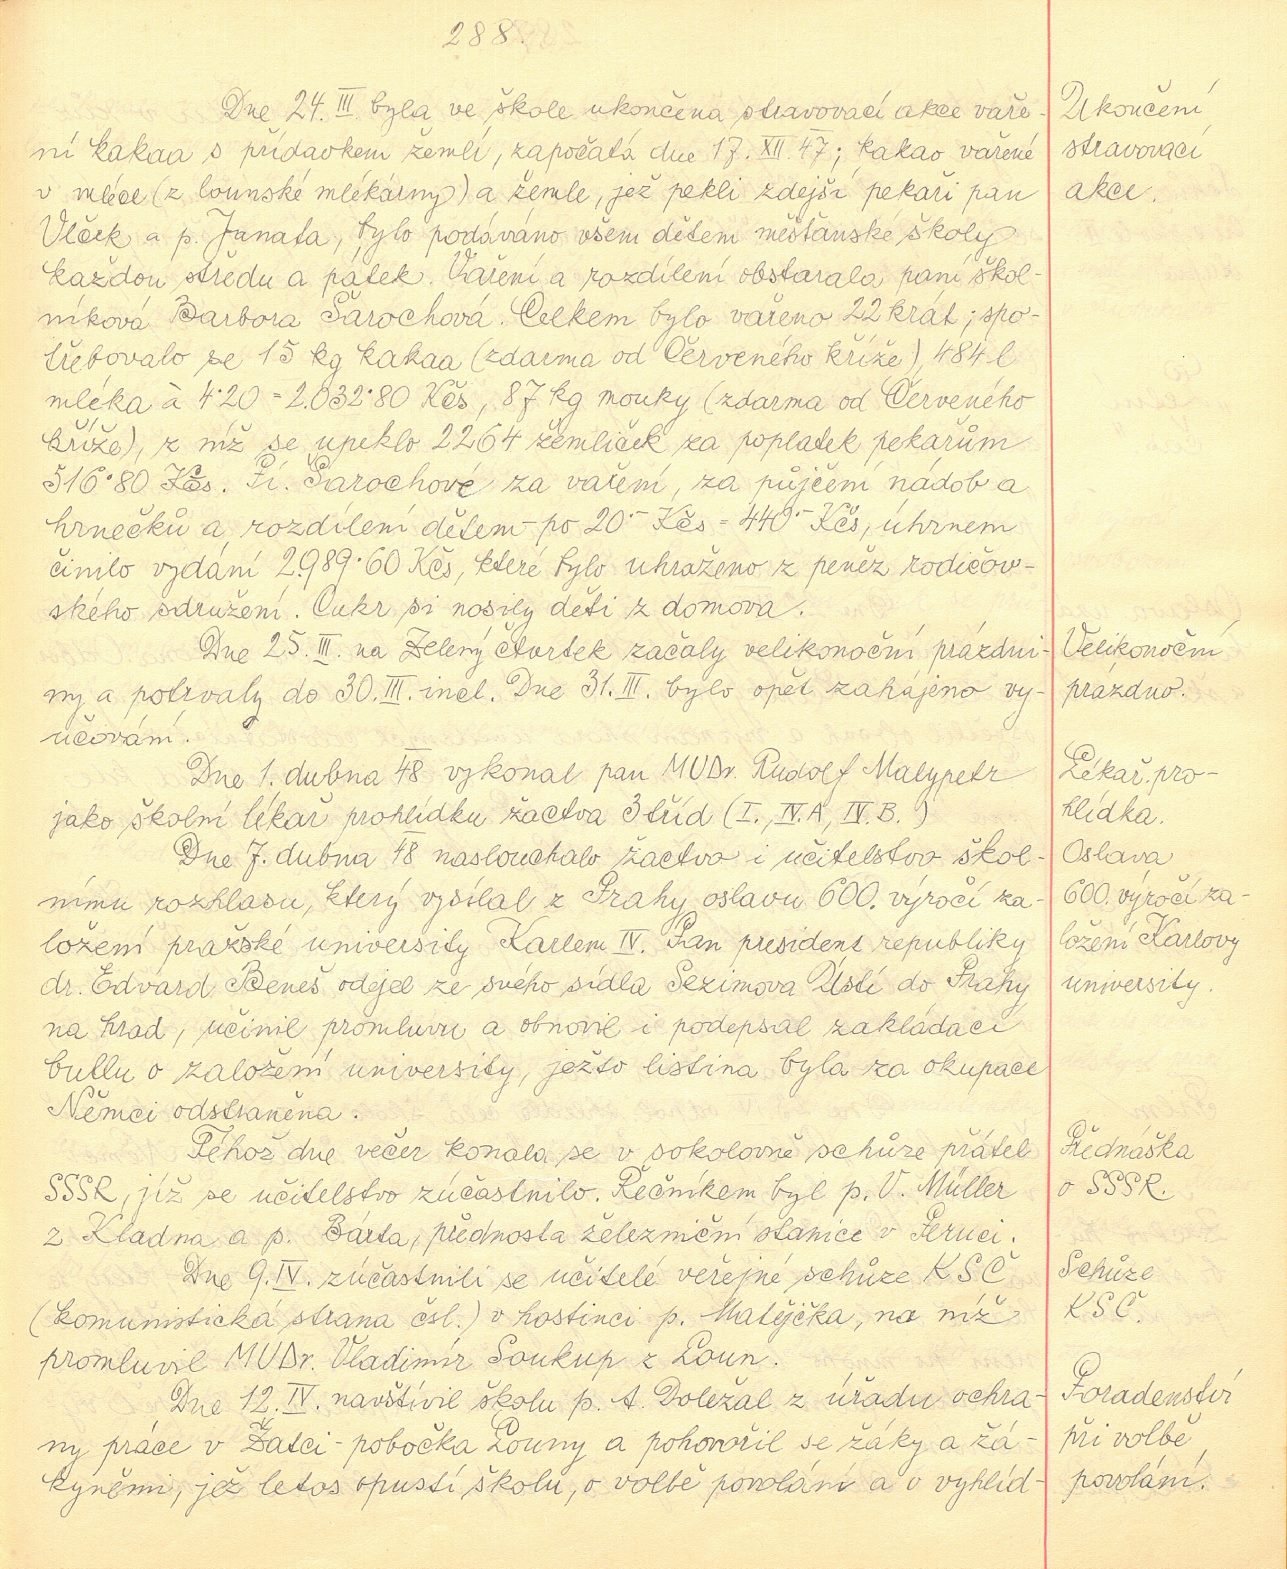 288.
Dne 24. III. byla ve škole ukončena stravovací akce vaře-
ní kakaa s přídavkem žemlí, započatá dne 17. XII. 47; kakao vařené
v mléce (z lounské mlékárny) a žemle, jež pekli zdejší pekaři pan
Vlček a p. Janata, bylo podáváno všem dětem měšťanské školy
každou středu a pátek. Vaření a rozdílení obstarala paní škol-
níková Barbora Šarochová. Celkem bylo vařeno 22 krát; spo-
třebovalo se 15 kg kakaa (zdarma od Červeného kříže), 484 l
mléka à 4·20 = 2.032·80 Kčs, 87 kg mouky (zdarma od Červeného
kříže), z níž se upeklo 2264 žemliček za poplatek pekařům
516·80 Kčs. Pí. Šarochové za vaření, za půjčení nádob a
hrnečků a rozdílení dětem po 20·– Kčs = 440·– Kčs, úhrnem
činilo vydání 2.989·60 Kčs, které bylo uhraženo z peněz rodičov-
ského sdružení. Cukr si nosily děti z domova.
Dne 25. III. na Zelený čtvrtek začaly velikonoční prázdni-
ny a potrvaly do 30. III. incl. Dne 31. III. bylo opět zahájeno vy-
učování.
Dne 1. dubna 48 vykonal pan MUDr. Rudolf Malypetr
jako školní lékař prohlídku žactva 3 tříd (I., IV.A, IV. B.)
Dne 7. dubna 48 naslouchalo žactvo i učitelstvo škol-
nímu rozhlasu, který vysílal z Prahy oslavu 600. výročí za-
ložení pražské university Karlem IV. Pan president republiky
dr. Edvard Beneš odejel ze svého sídla Sezimova Ústí do Prahy
na hrad, učinil promluvu a obnovil i podepsal zakládací
bullu o založení university, ježto listina byla za okupace
Němci odstraněna.
Téhož dne večer konala se v sokolovně schůze přátel
SSSR, jíž se učitelstvo zúčastnilo. Řečníkem byl p. V. Müller
z Kladna a p. Bárta, přednosta železniční stanice v Peruci.
Dne 9. IV. zúčastnili se učitelé veřejné schůze KSČ
(komunistická strana čsl.) v hostinci p. Matějčka, na níž
promluvil MUDr. Vladimír Soukup z Loun.
Dne 12. IV. navštívil školu p. A. Doležal z úřadu ochra-
ny práce v Žatci - pobočka Louny a pohovořil se žáky a žá-
kyněmi, jež letos opustí školu, o volbě povolání a o vyhlíd-
Ukončení
stravovací
akce.
Velikonoční
prázdno.
Lékař. pro-
hlídka.
Oslava
600. výročí za-
ložení Karlovy
university.
Přednáška
o SSSR.
Schůze
KSČ.
Poradenství
při volbě
povolání.